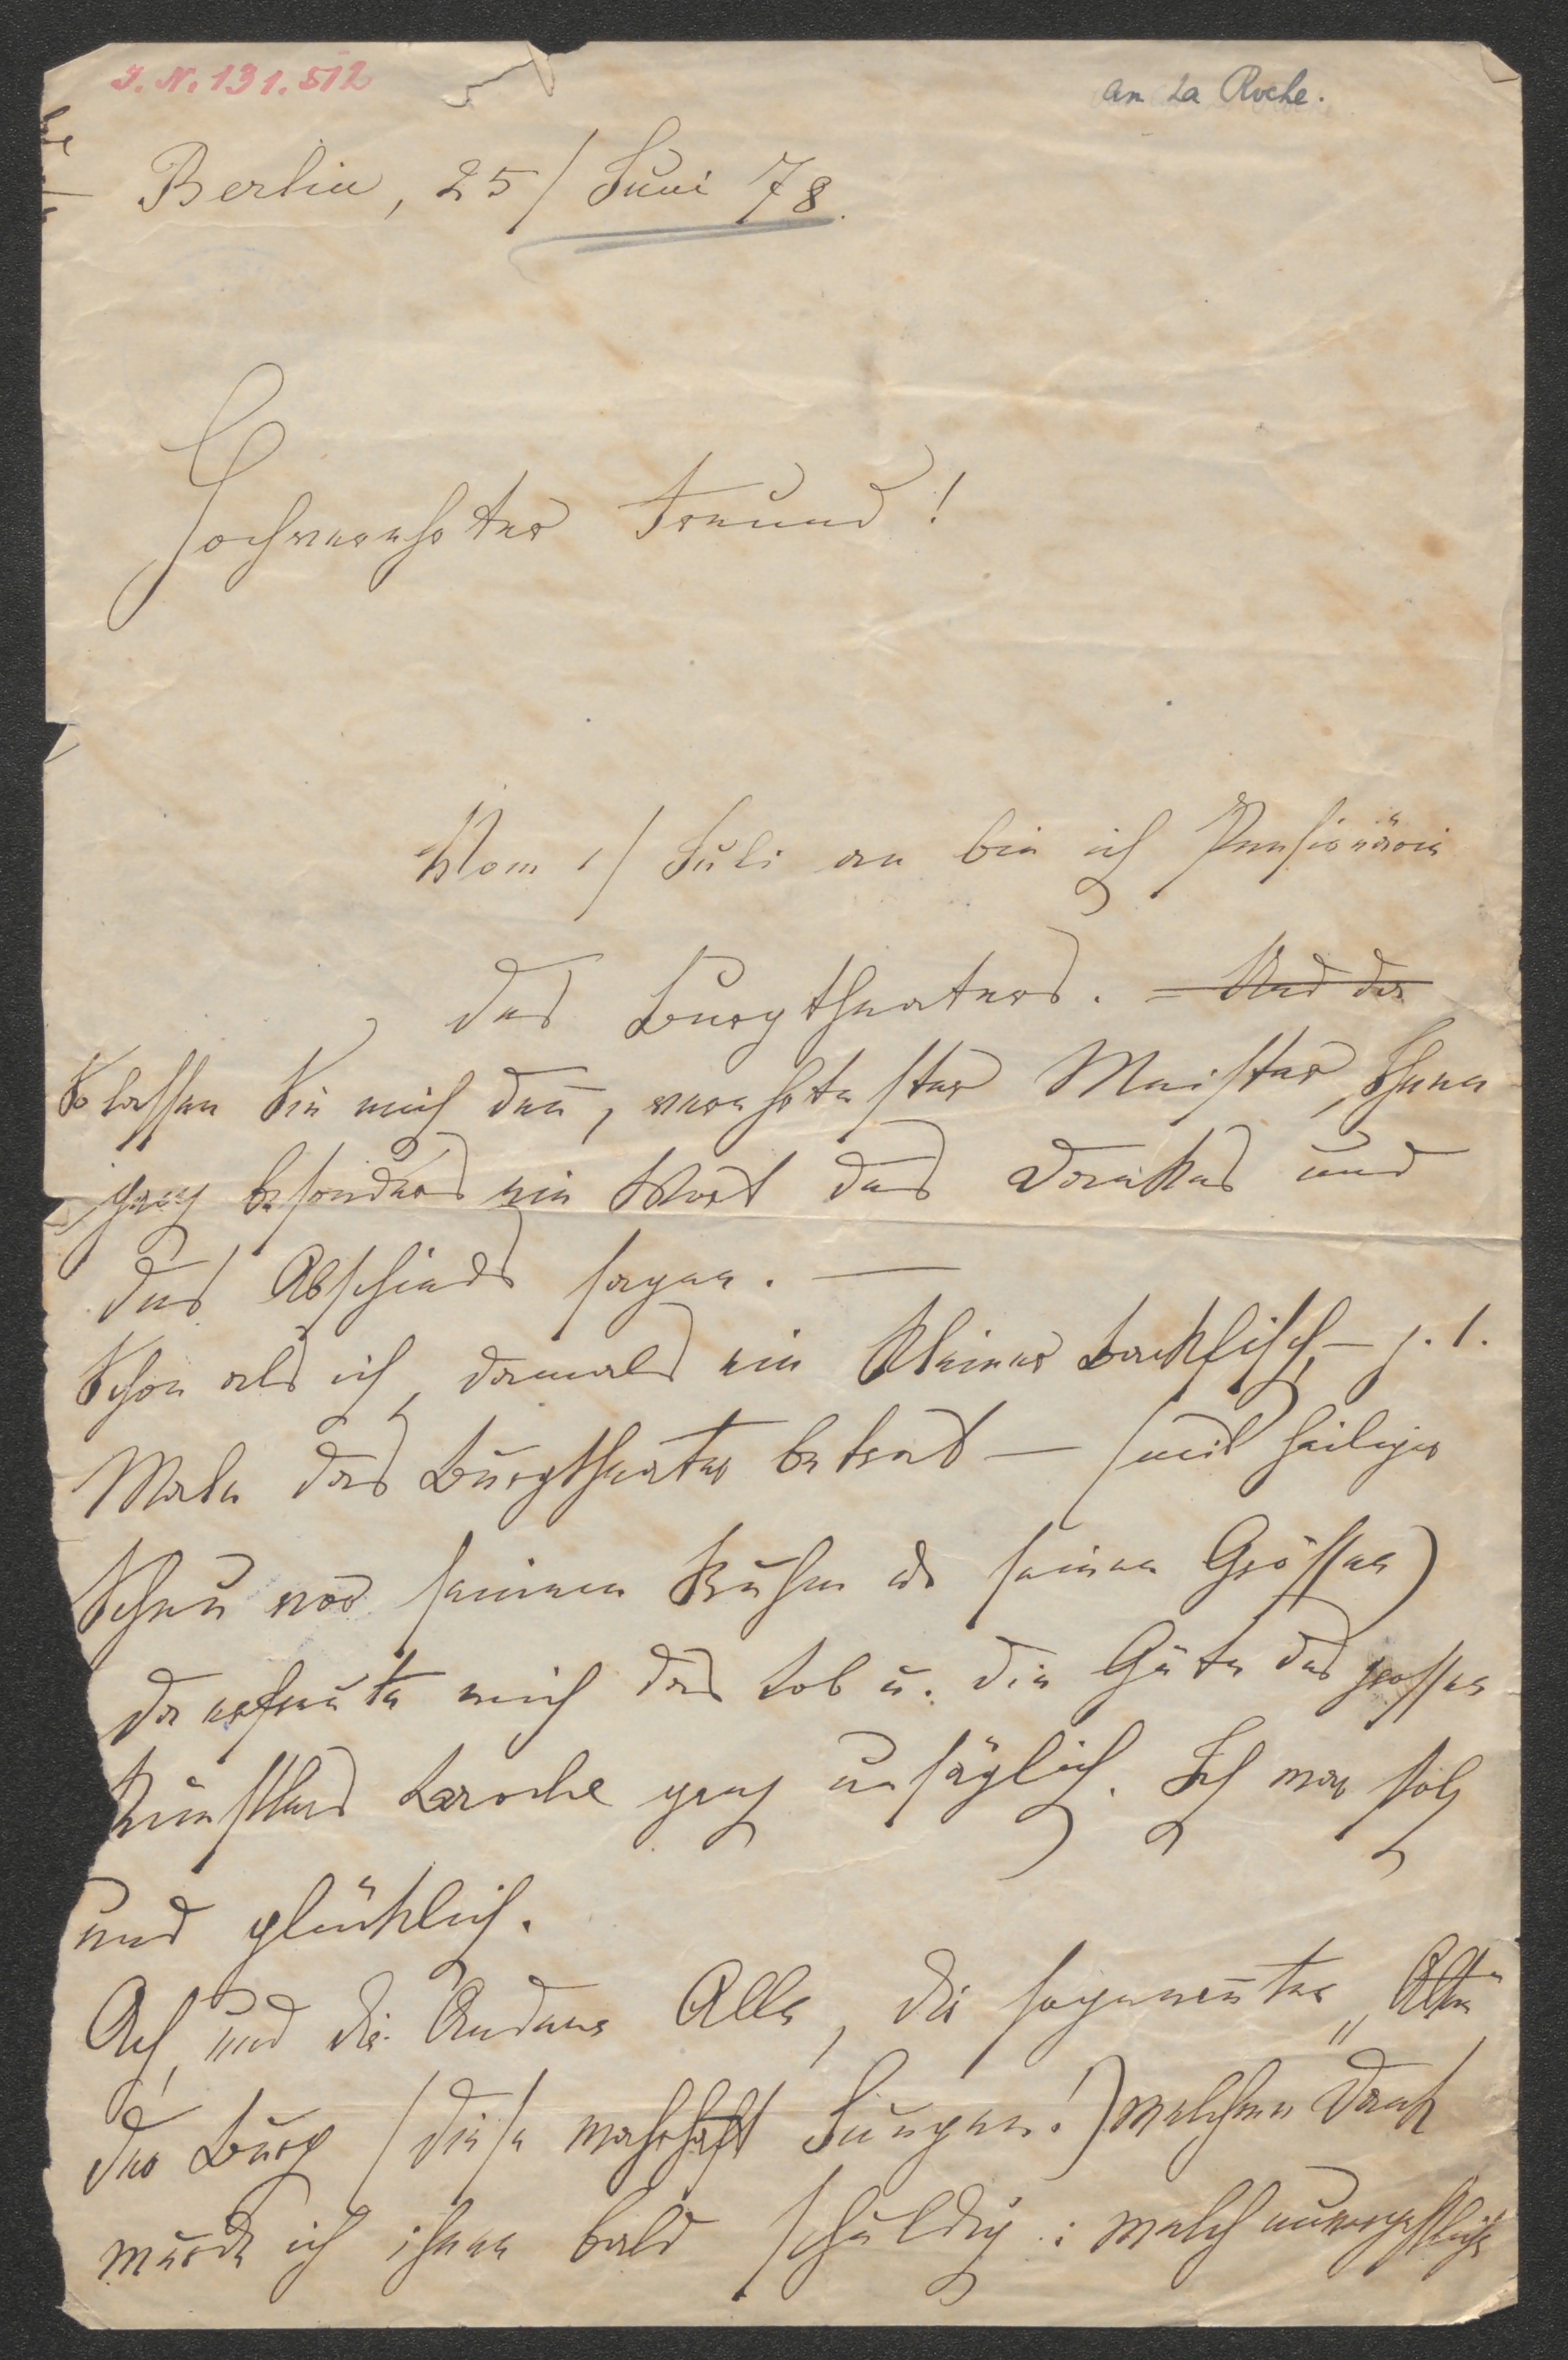 J. N. 131.512
an La Roche.
Berlin, 25/ Juni 78.
Hochverehrter Freund!
Vom 1/ Juli an bin ich Pensionärin
des Burgtheaters. – Und da
So lassen Sie mich deñ, verehrtester Meister, Ihnen
ganz besonders ein Wort des Dankes und
des Abschieds sagen. —
Schon als ich, damals ein kleiner Backfisch, – z. 1.
Male das Burgtheater betrat — (mit heiliger
Scheu vor seinem Ruhm u seinen Grössen)
da erfreute mich das Lob u. die Güte des grossen
Künstlers Laroche ganz unsäglich. Ich war stolz
und glücklich.
Ach, und die Andern Alle, die sogenañten „Alten"
der Burg (diese wahrhaft Jungen!) welchen Dank
wurde ich ihnen bald schuldig: welch unvergessliche